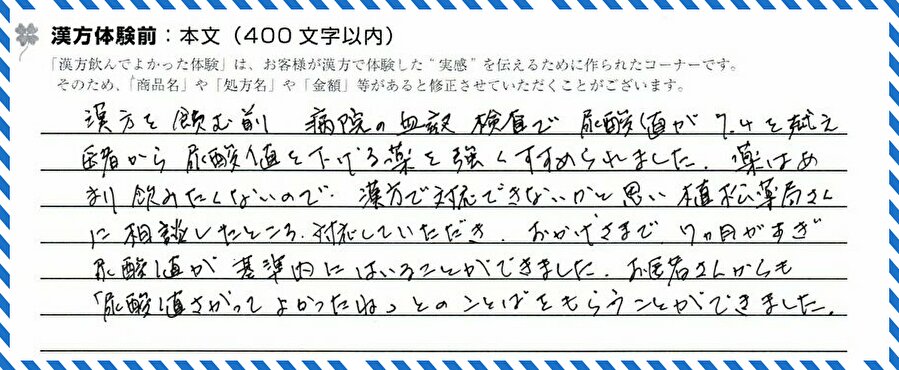 漢方体験前：本文（400文字以内）
「漢方飲んでよかった体験」は、お客様が漢方で体験した“実感”を伝えるために作られたコーナーです。
そのため、「商品名」や「処方名」や「金額」等があると修正させていただくことがございます。
漢方を飲む前 病院の血液検査で 尿酸値が 7.4を越え
医者から 尿酸値を下げる薬を強くすすめられました。薬はあ
まり飲みたくないので、漢方で対応できないかと思い 植松薬局さん
に相談したところ、対応していただき、おかげさまで、7ヵ月がすぎ
尿酸値が 基準内にはいることができました。お医者さんからも
「尿酸値さがって よかったね」とのことばをもらうことができました。